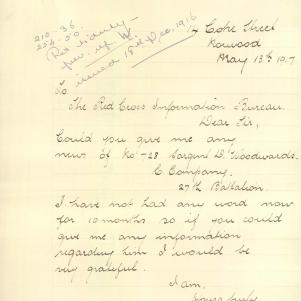 210-36
256-50
Red
prev. up W.
issued 18th Dec. 1916
14 Coke Street
Norwood
May 13th 1917
To.
The Red Cross Information Bureau.
Dear Sir,
Could you give me any
news of No 728 Sargent D. Woodwards.
C Company.
27th Battalion.
I have not had any word now
for 10 months so if you could
give me any information
regarding him I would be
very grateful.
I am,
Yours truly